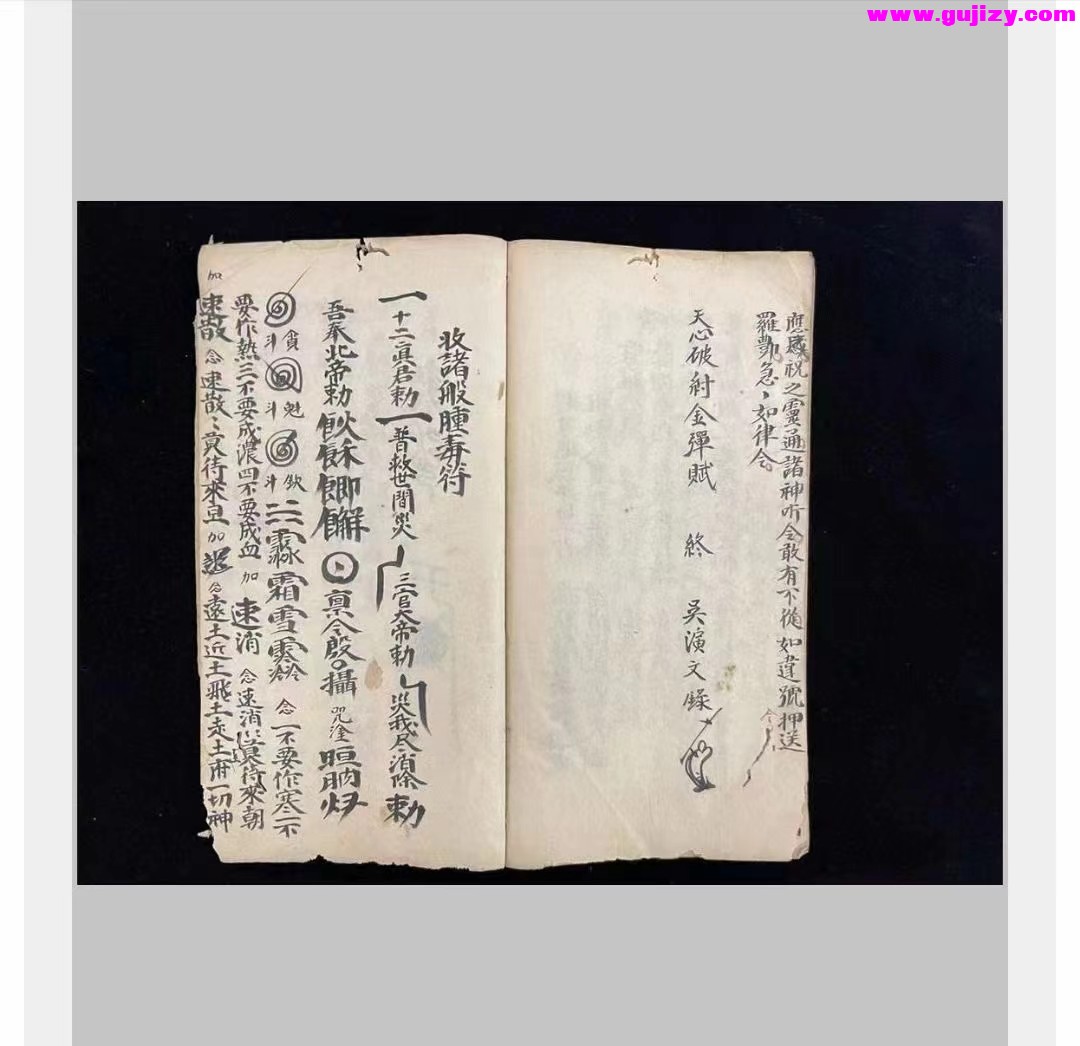 www.gujizy.com
應感祝之靈通諸神听令敢有不從如違號押送
羅酆急急如律令
天心破射金彈賦 終 吳演文錄
收諸般腫毒符
十二真君勅 普救世間災 三官大帝勅 災我尽消除 勅
吾奉北帝勅 稟令 攝 咒塗
斗 貪 斗 魁 斗 霜雪 念 一不要作寒二不
要作熱三不要成濃四不要成血 加 速消 念 速消 莫待來朝
加 速散 念 速散 莫待來 加 念 遠土近土飛土走土府一切神